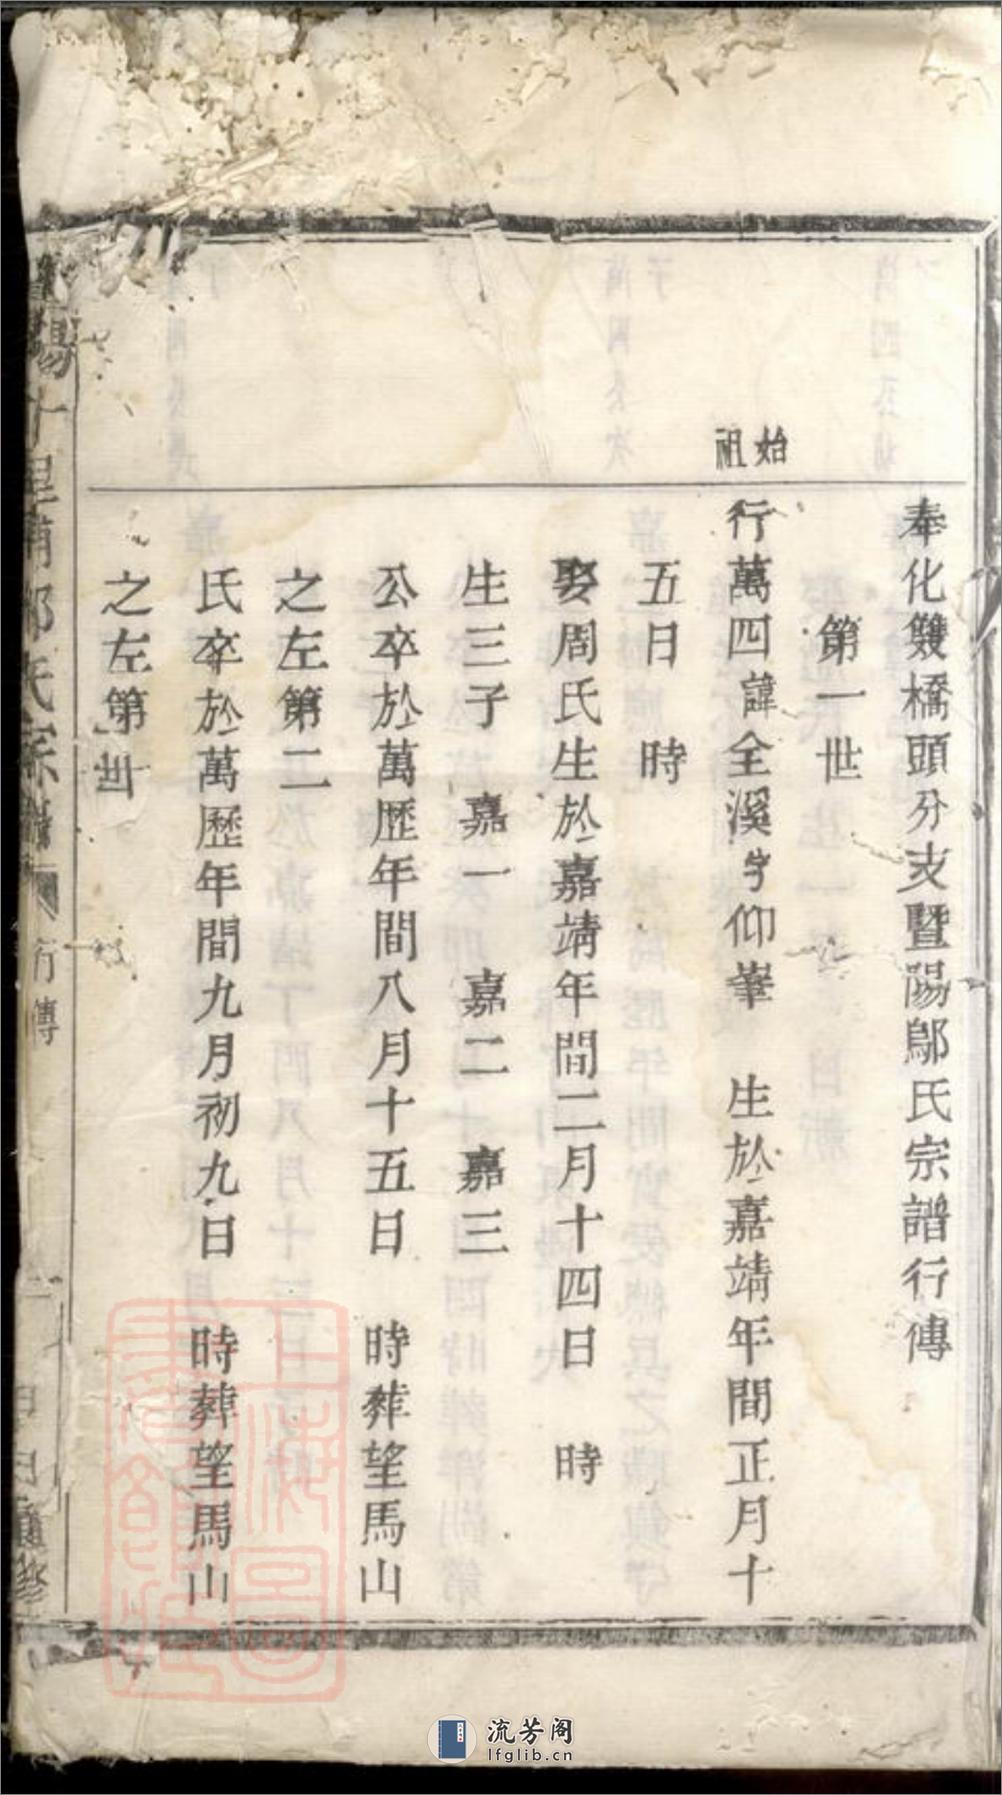 奉化雙橋頭分支暨陽鄔氏宗譜行傳
第一世
始祖
行萬四諱全溪字仰峯 生於嘉靖年間正月十
五日 時
娶周氏生於嘉靖年間二月十四日 時
生三子 嘉一 嘉二 嘉三
公卒於萬歷年間八月十五日 時葬望馬山
之左第二
氏卒於萬歷年間九月初九日 時葬望馬山
之左第
行傳
流芳阁
lfglib.cn